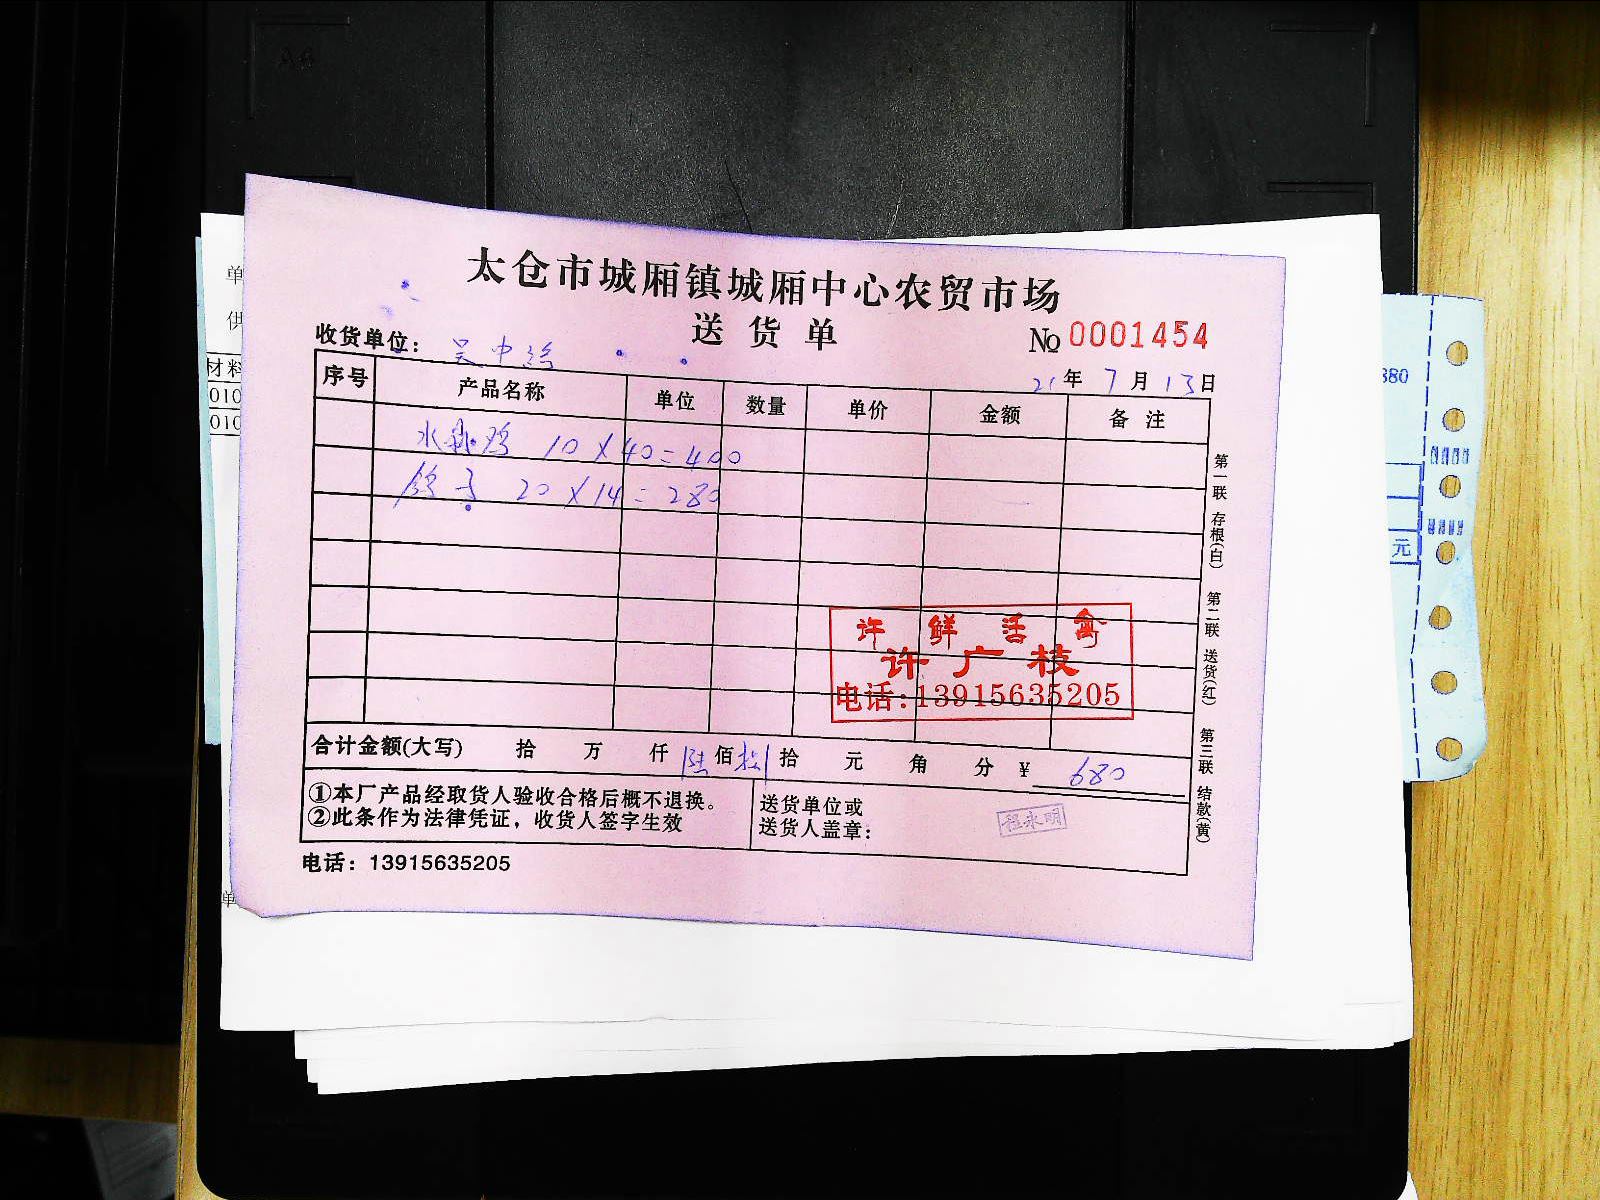 太仓市城厢镇城厢中心农贸市场
送货单
№ 0001454
收货单位：吴中
21年7月13日
序号 产品名称 单位 数量 单价 金额 备注
水 鸡 10×40=400
鸽子 20×14=280
许鲜活禽
许广枝
电话:13915635205
合计金额(大写) 拾 万 仟 陆佰捌拾 元 角 分 ¥ 680
①本厂产品经取货人验收合格后概不退换。
②此条作为法律凭证，收货人签字生效
送货单位或
送货人盖章：
程永明
电话：13915635205
第一联 存根(白) 第二联 送货(红) 第三联 结款(黄)
单
供
材料
010
010
单
380
元